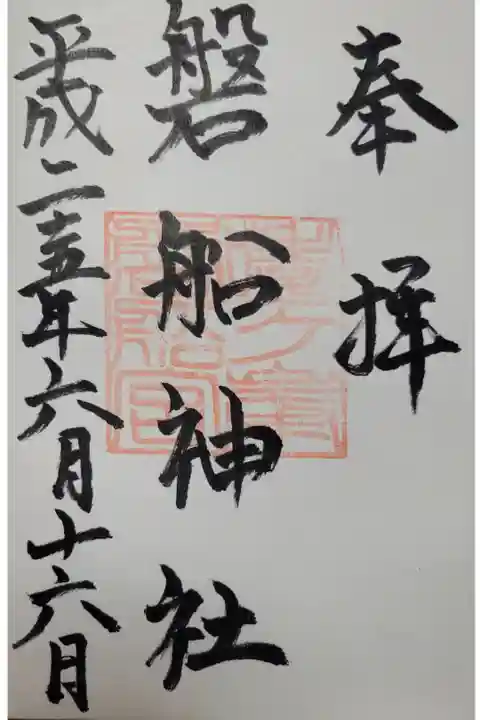 奉拝
磐船神社
平成二五年六月十六月